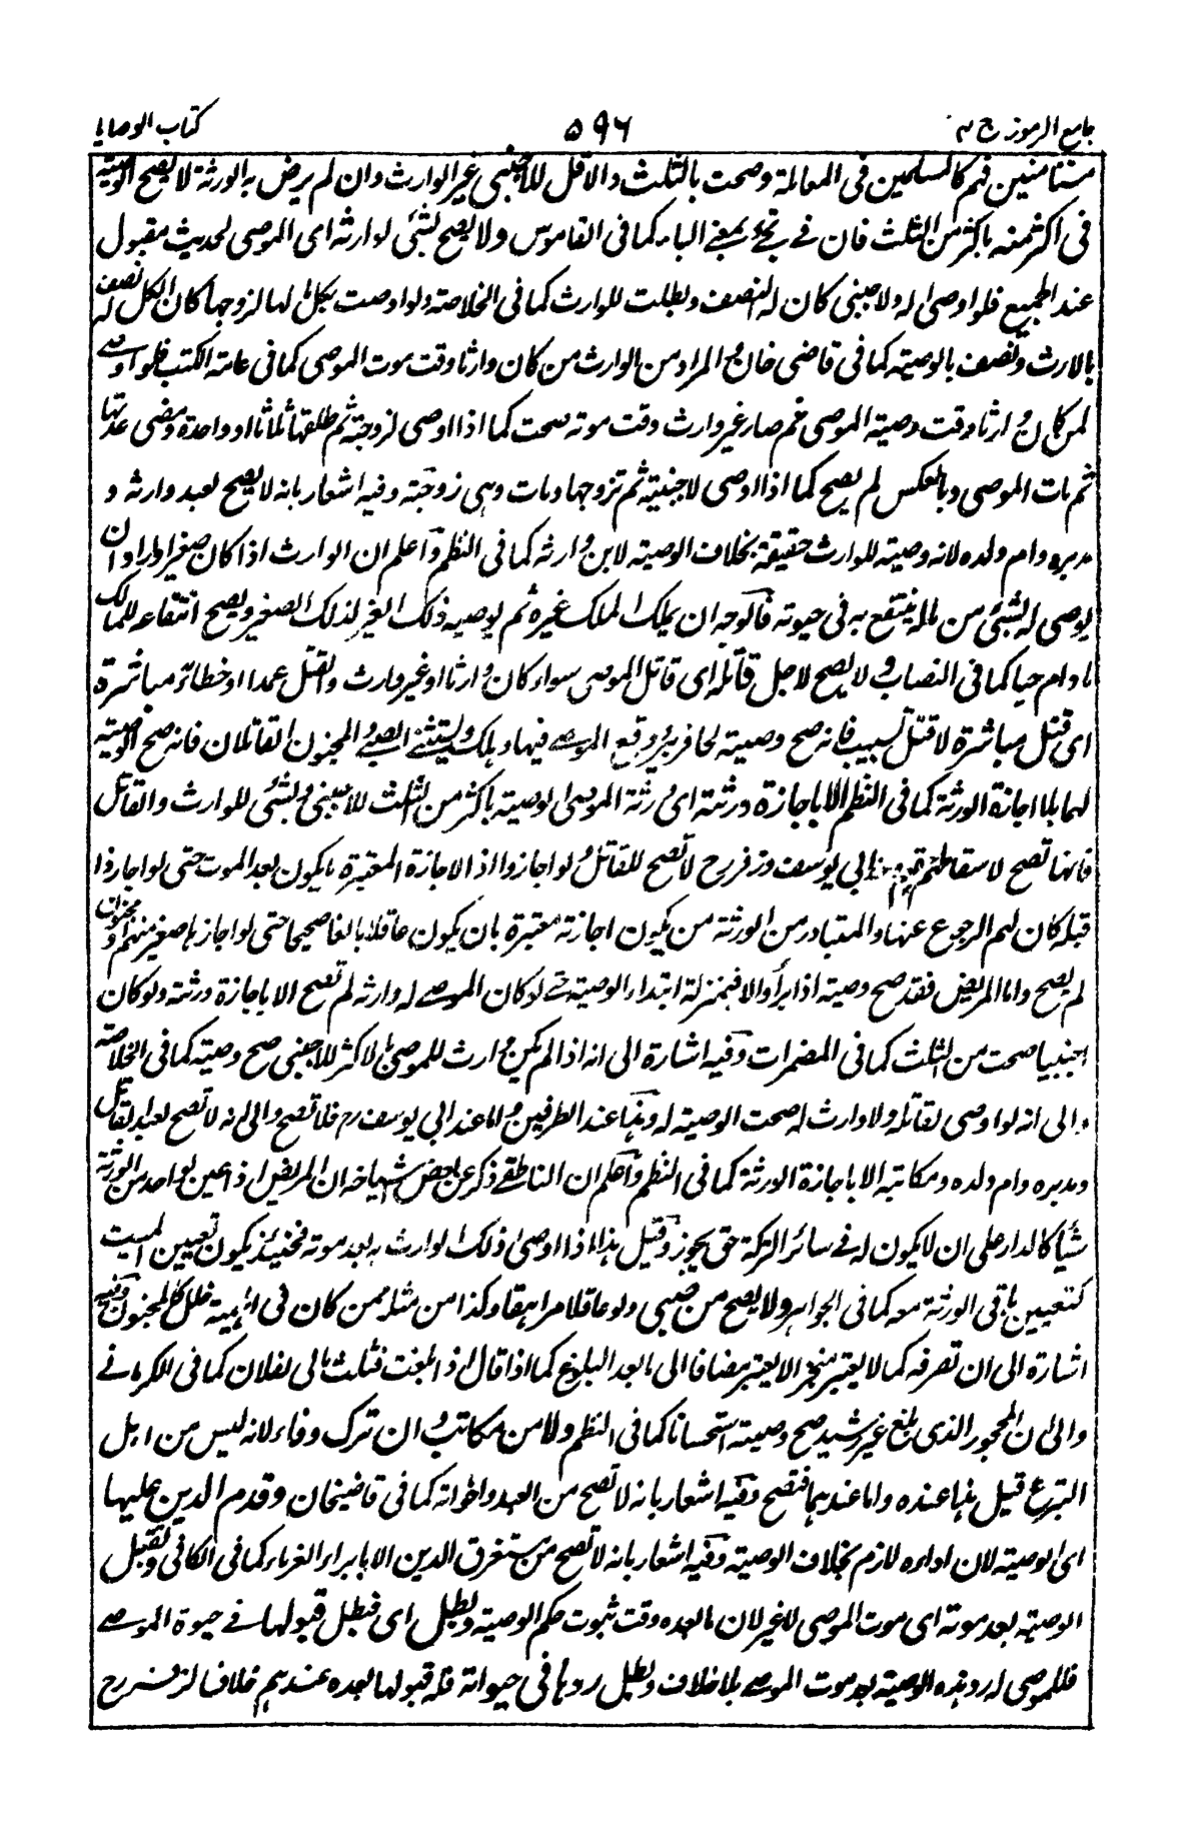 جامع الرموز ج ٢
٥٩٦
كتاب الوصايا
مستامنين فهم كالمسلمين فى المعاملة وصحت بالثلث والاقل للاجنبى غير الوارث وان لم يرض به الورثة لا يصح الوصية
فى اكثر منه باكثر من الثلث فان فى تجئ بمعنى الباء كما فى القاموس ولا يصح بشئ لوارثه اى الموصى لحديث مقبول
عند الجميع فلو اوصى له ولاجنبى كان له النصف وبطلت للوارث كما فى الخلاصة ولو اوصت بكل مالها لزوجها كان الكل له نصف
بالارث ونصف بالوصية كما فى قاضى خان والمراد من الوارث من كان وارثا وقت موت الموصى كما فى عامة الكتب فلو اوصى
لمن كان وارثا وقت وصية الموصى ثم صار غير وارث وقت موته صحت كما اذا اوصى لزوجته ثم طلقها ثلاثا او واحدة ومضى عدتها
ثم مات الموصى وبالعكس لم يصح كما اذا اوصى لاجنبية ثم تزوجها ومات وهى زوجته وفيه اشعار بانه لا يصح لعبد وارثه و
مدبره وام ولده لانه وصية للوارث حقيقة بخلاف الوصية لابن وارثه كما فى النظم واعلم ان الوارث اذا كان صغيرا واراد ان
يوصى له بشئ من ماله ينتفع به فى حيوته فالوجه ان يملك الملك غيره ثم يوصيه ذلك الغير لذلك الصغير ويصح انتفاعه للمالك
ما دام حيا كما فى النصاب ولا يصح لاجل قاتله اى قاتل الموصى سواء كان وارثا او غير وارث والقتل عمدا او خطاء مباشرة
اى قتل مباشرة لا قتل تسبيب فانه صح وصيته لحافر بئر وقع الموصى فيها وهلك ويستثنى الصبى المجنون القاتلان فانه صح الوصية
لهما بلا اجازة الورثة كما فى النظم الا باجازة ورثته اى ورثة الموصى الوصية باكثر من الثلث للاجنبى وبشئ للوارث والقاتل
فانها تصح لاسقاطهم حقهم وعند ابى يوسف وزفر رح لا تصح للقاتل ولو اجازوا اذ الاجازة المعتبرة ما يكون بعد الموت حتى لو اجازوا
قبله كان لهم الرجوع عنها والمتبادر من الورثة من يكون اجازته معتبرة بان يكون عاقلا بالغا صحيحا حتى لو اجازها صغير منهم او مجنون
لم يصح واما المريض فقد صح وصيته اذا برأ والا فبمنزلة ابتداء الوصية حتى لو كان الموصى له وارثه لم تصح الا باجازة ورثته ولو كان
اجنبيا صحت من الثلث كما فى المضمرات وفيه اشارة الى انه اذا لم يكن وارث للموصى بالاكثر للاجنبى صح وصيته كما فى الخلاصة
والى انه لو اوصى لقاتله ولا وارث له صحت الوصية له وهذا عند الطرفين واما عند ابى يوسف رح فلا تصح والى انه لا تصح لعبد القاتل
ومدبره وام ولده ومكاتبه الا باجازة الورثة كما فى النظم واعلم ان الناطقى ذكر عن بعض اشياخه ان المريض اذا عين لواحد من الورثة
شيأ كالدار على ان لا يكون له فى سائر التركة حق يجوز وقيل هذا اذا اوصى ذلك الوارث به بعد موته فحينئذ يكون تعيين الميت
كتعيين باقى الورثة معه كما فى الجواهر ولا يصح من صبى ولو عاقلا مراهقا وكذا من مثله ممن كان فى اهليته خلل كالمجنون وفيه
اشارة الى ان تصرفه كما لا يعتبر منجزا لا يعتبر مضافا الى ما بعد البلوغ كما اذا قال اذا بلغت فثلث مالى لفلان كما فى الكرمانى
والى ان المحجور الذى بلغ غير رشيد صح وصيته استحسانا كما فى النظم ولا من مكاتب وان ترك وفاء لانه ليس من اهل
التبرع قيل هذا عنده واما عندهما فتصح وفيه اشعار بانه لا تصح من العبد واخواته كما فى قاضيخان وقدم الدين عليها
اى الوصية لان اداءه لازم بخلاف الوصية وفيه اشعار بانه لا تصح من مستغرق الدين الا بابراء الغرماء كما فى الكافى وتقبل
الوصية بعد موته اى موت الموصى لا غير لان ما بعده وقت ثبوت حكم الوصية وبطل اى فبطل قبولها فى حيوة الموصى
فللموصى له رد هذه الوصية بعد موت الموصى بلا خلاف وبطل ردها فى حيوته فله قبولها بعده عندهم خلافا لزفر رح